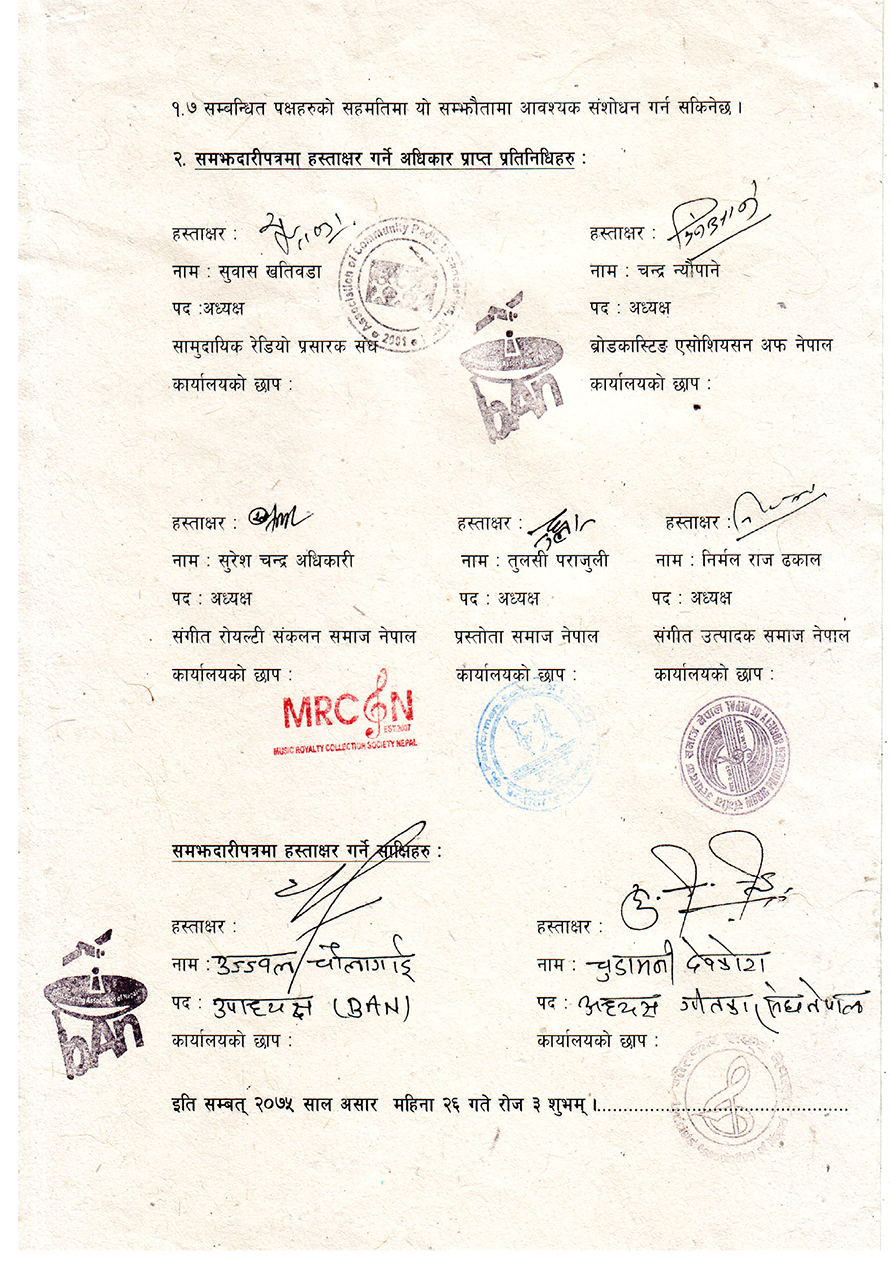 १.७ सम्बन्धित पक्षहरुको सहमतिमा यो सम्झौतामा आवश्यक संशोधन गर्न सकिनेछ ।
२. समझदारीपत्रमा हस्ताक्षर गर्ने अधिकार प्राप्त प्रतिनिधिहरु :
हस्ताक्षर :
नाम : सुवास खतिवडा
पद :अध्यक्ष
सामुदायिक रेडियो प्रसारक संघ
कार्यालयको छाप :
Association of Community Radio
2001
हस्ताक्षर :
नाम : चन्द्र न्यौपाने
पद : अध्यक्ष
ब्रोडकास्टिङ एसोशियसन अफ नेपाल
कार्यालयको छाप :
bAn
हस्ताक्षर :
नाम : सुरेश चन्द्र अधिकारी
पद : अध्यक्ष
संगीत रोयल्टी संकलन समाज नेपाल
कार्यालयको छाप :
MRCSN
EST.2007
MUSIC ROYALTY COLLECTION SOCIETY NEPAL
हस्ताक्षर :
नाम : तुलसी पराजुली
पद : अध्यक्ष
प्रस्तोता समाज नेपाल
कार्यालयको छाप :
हस्ताक्षर :
नाम : निर्मल राज ढकाल
पद : अध्यक्ष
संगीत उत्पादक समाज नेपाल
कार्यालयको छाप :
समझदारीपत्रमा हस्ताक्षर गर्ने साक्षिहरु :
हस्ताक्षर :
नाम : उज्ज्वल चौलागाई
पद : उपाध्यक्ष (BAN)
कार्यालयको छाप :
bAn
हस्ताक्षर :
नाम : चुडामनी देवकोटा
पद : अध्यक्ष गीतकार संघ नेपाल
कार्यालयको छाप :
इति सम्बत् २०७५ साल असार महिना २६ गते रोज ३ शुभम् ।